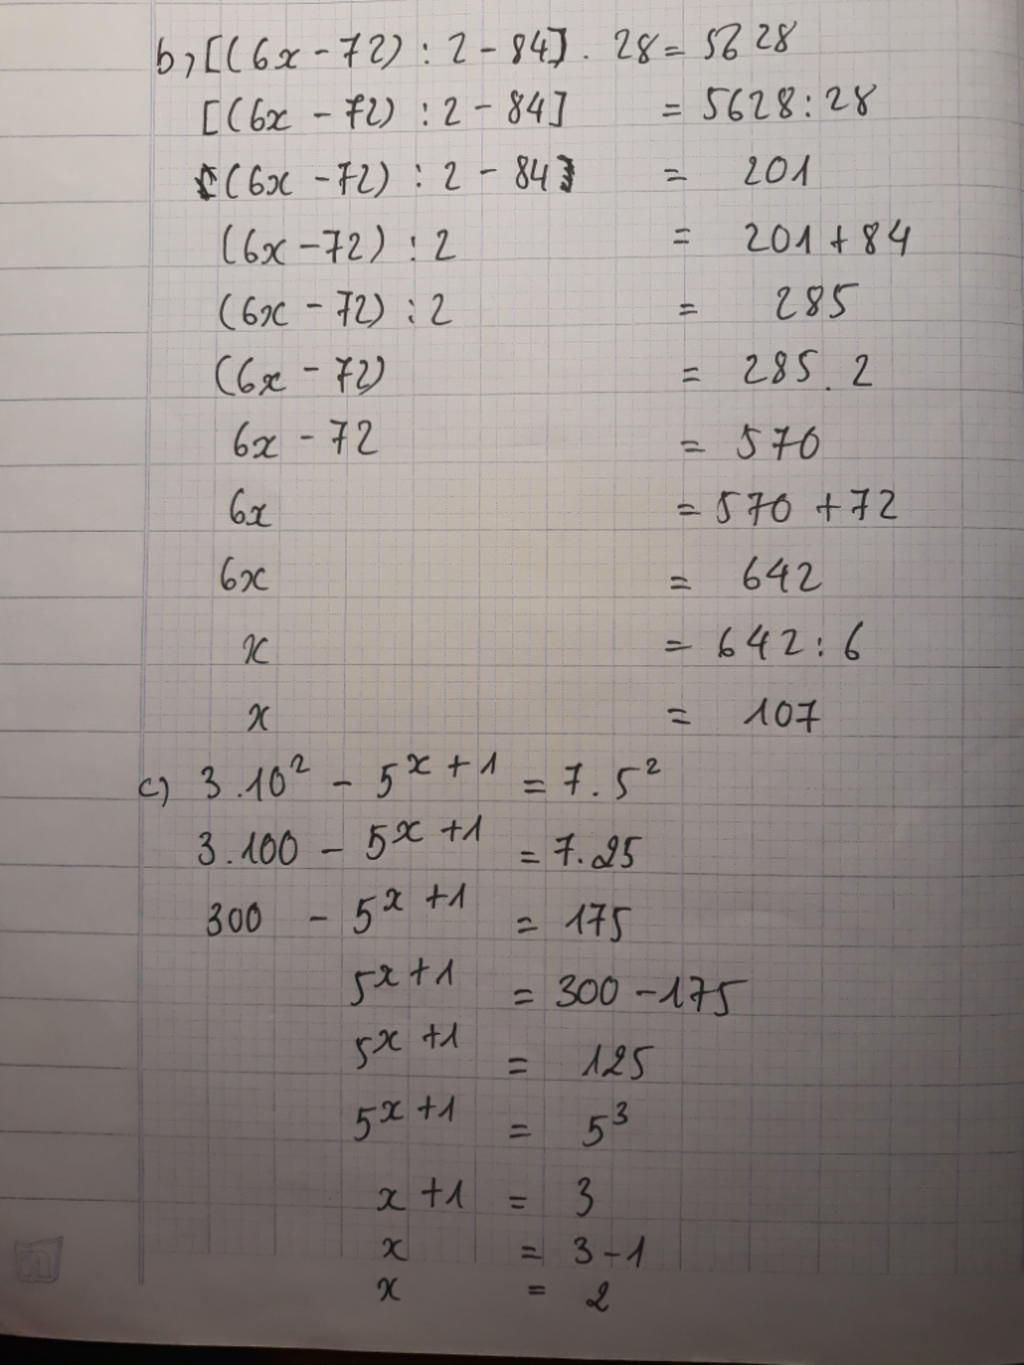 b, [(6x - 72) : 2 - 84] . 28 = 5628
[(6x - 72) : 2 - 84] = 5628 : 28
(6x - 72) : 2 - 84 = 201
(6x - 72) : 2 = 201 + 84
(6x - 72) : 2 = 285
(6x - 72) = 285 . 2
6x - 72 = 570
6x = 570 + 72
6x = 642
x = 642 : 6
x = 107
c) 3 . 10² - 5ˣ⁺¹ = 7 . 5²
3 . 100 - 5ˣ⁺¹ = 7 . 25
300 - 5ˣ⁺¹ = 175
5ˣ⁺¹ = 300 - 175
5ˣ⁺¹ = 125
5ˣ⁺¹ = 5³
x + 1 = 3
x = 3 - 1
x = 2